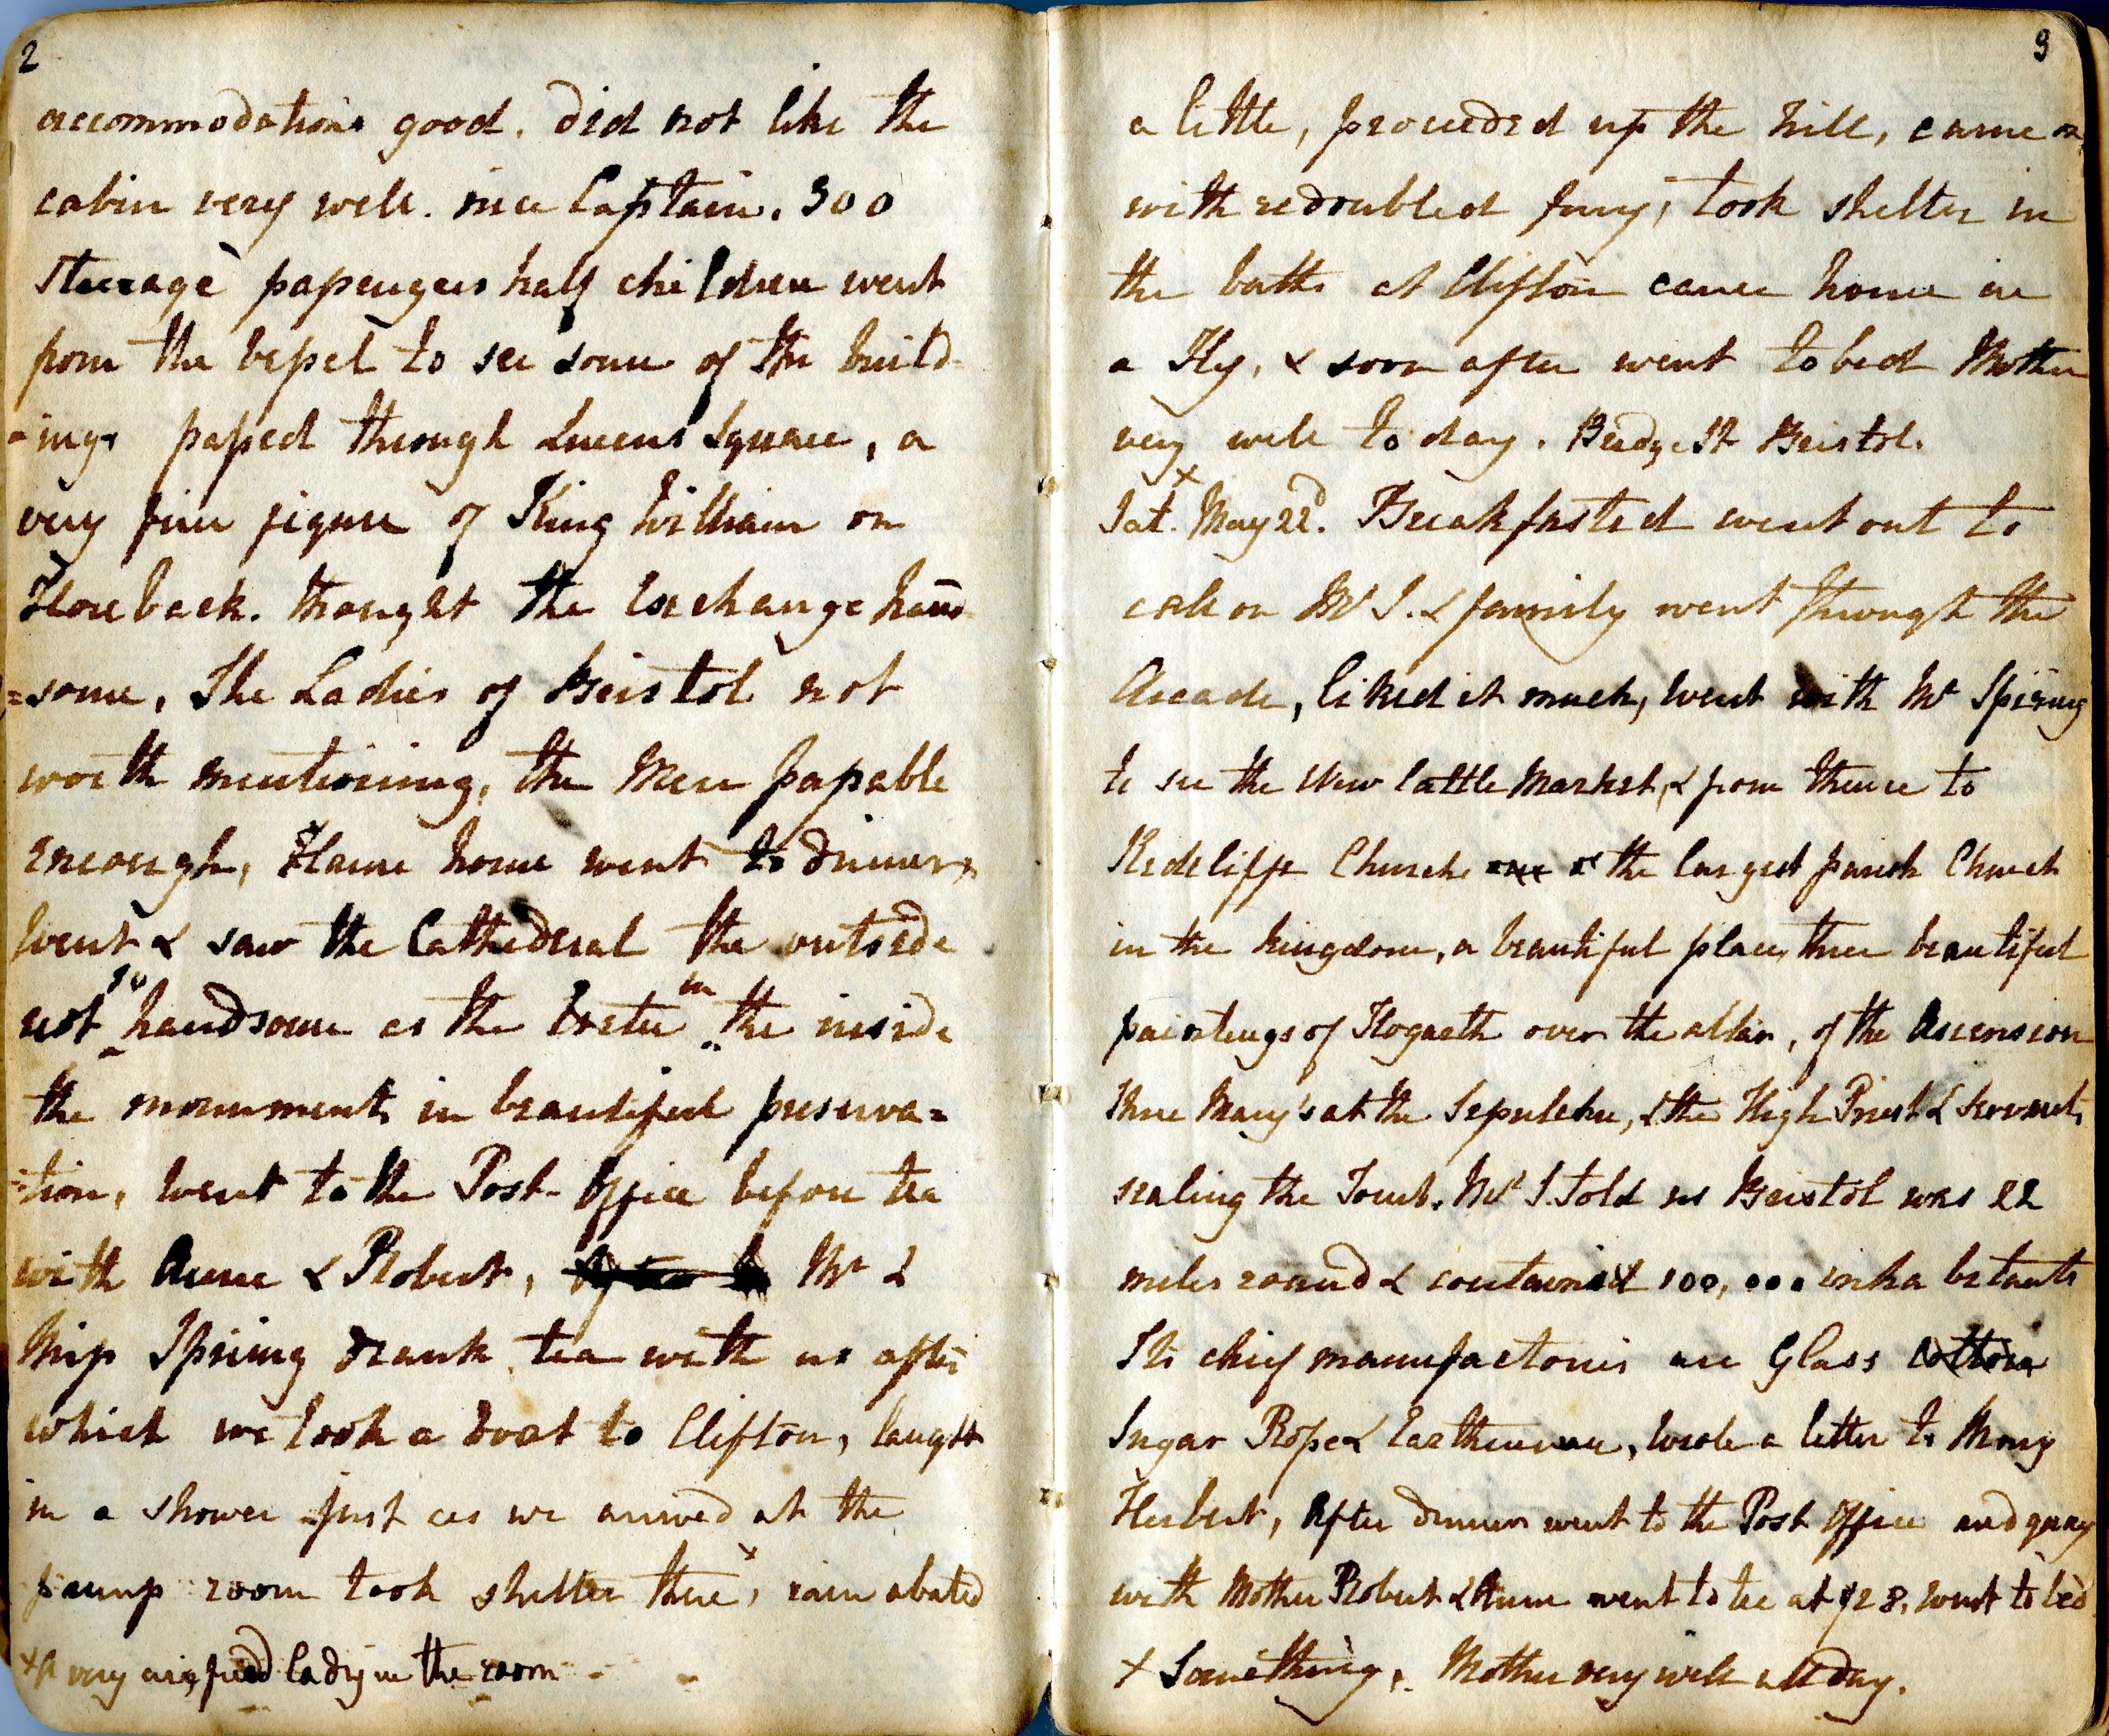 2
accommodations good. did not like the
cabin very well. nice Captain. 300
Steerage passengers half children went
from the vessel to see some of the build-
-ings passed through Queens Square, a
very fine figure of King William on
Horseback. thought the Exchange hand
=some. The Ladies of Bristol not
worth mentioning, the Men passable
enough, Came home went to dinner,
went & saw the Cathedral the outside
not so handsome as the Exeter in the inside
the monuments in beautiful preserva=
=tion, went to the Post-Office before tea
with Anne & Robert, Mr &
Miss Spring drank tea with us after
which we took a boat to Clifton, caught
in a shower just as we arrived at the
pump room took shelter there x, rain abated
x A very lady in the room
3
a little, proceeded up the hill, came on
with redoubled fury, took shelter in
the baths at Clifton came home in
a Fly, & soon after went to bed Mother
very well to day. Bridge St Bristol.
Sat. x May 22d. Breakfasted went out to
call on Mr S. & family went through the
Arcade, liked it much, went with Mr Spring
to see the New Cattle Market, & from thence to
Redcliffe Church one of the largest parish Church
in the kingdom, a beautiful place, three beautiful
paintings of Hogarth over the altar, of the Ascension
Three Mary's at the Sepulchre, & the High Priest & Servants
sealing the Tomb. Mr S. told us Bristol was 22
miles round & contained 100,000 inhabitants
Its chief manufactories are Glass Cotton
Sugar Rope & Earthenware, wrote a letter to Mary
Herbert, After dinner went to the Post Office and quay
with Mother Robert & Anne went to tea at 1/2 8, went to bed
x Something. Mother very well all day.